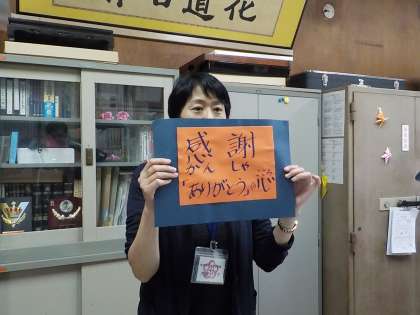 花道
感謝
かんしゃ
「ありがとう」の心